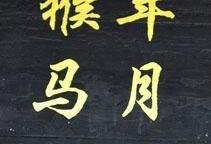 猴年
马月